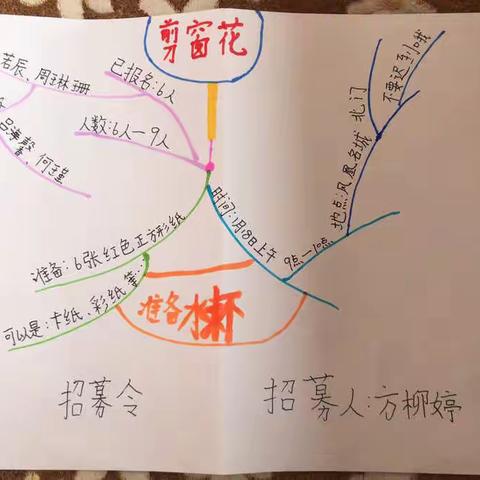 剪窗花
已报名:6人
若辰、周琳珊
人数:6人—9人
何瑾
准备:6张红色正方形纸
可以是:卡纸、彩纸等…
时间:1月18日上午
9点—10点
地点:凤凰名城
北门
不要迟到哦
准备水杯
招募令
招募人:方柳婷